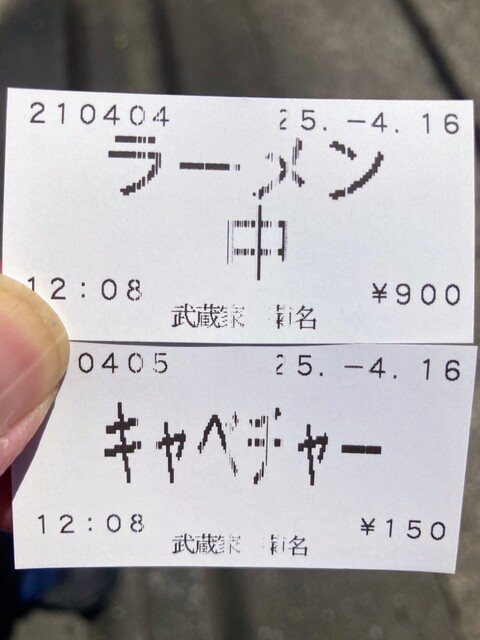 210404 25.-4.16
ラーメン
中
12:08 ¥900
武蔵家 菊名
0405 25.-4.16
キャベジャー
12:08 ¥150
武蔵家 菊名